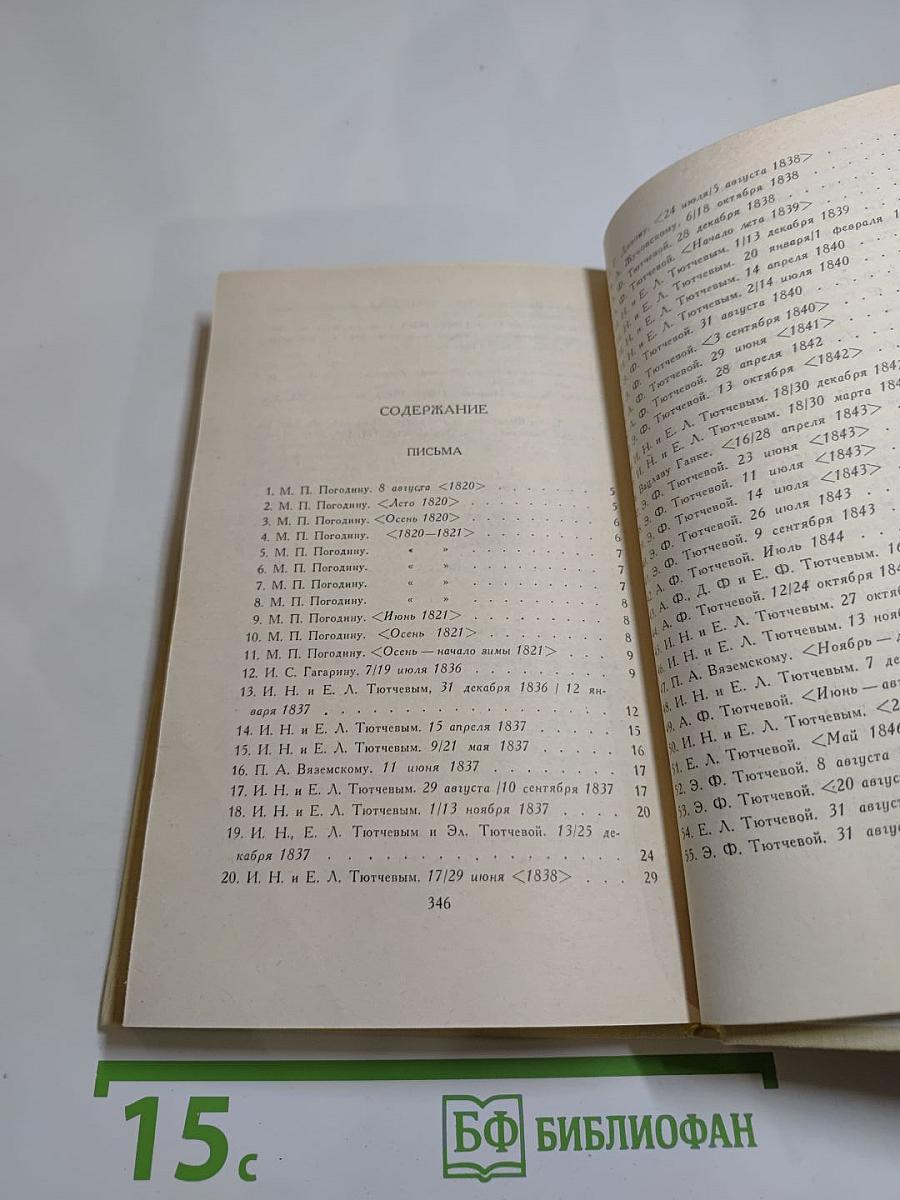 СОДЕРЖАНИЕ
ПИСЬМА
1. М. П. Погодину. 8 августа <1820> . . . . . . . . 5
2. М. П. Погодину. <Лето 1820> . . . . . . . . . . 5
3. М. П. Погодину. <Осень 1820> . . . . . . . . . . 6
4. М. П. Погодину. <1820—1821> . . . . . . . . . 6
5. М. П. Погодину. « » . . . . . . . . . . 7
6. М. П. Погодину. « » . . . . . . . . . . 7
7. М. П. Погодину. « » . . . . . . . . . . 7
8. М. П. Погодину. « » . . . . . . . . . . 8
9. М. П. Погодину. <Июнь 1821> . . . . . . . . . . 8
10. М. П. Погодину. <Осень 1821> . . . . . . . . . 8
11. М. П. Погодину. <Осень — начало зимы 1821> . . . . 9
12. И. С. Гагарину. 7/19 июля 1836 . . . . . . . . . . 9
13. И. Н. и Е. Л. Тютчевым, 31 декабря 1836 / 12 ян-
варя 1837 . . . . . . . . . . . . . . . . . 12
14. И. Н. и Е. Л. Тютчевым. 15 апреля 1837 . . . . . . 15
15. И. Н. и Е. Л. Тютчевым. 9/21 мая 1837 . . . . . . 16
16. П. А. Вяземскому. 11 июня 1837 . . . . . . . . 17
17. И. Н. и Е. Л. Тютчевым. 29 августа /10 сентября 1837 17
18. И. Н. и Е. Л. Тютчевым. 1/13 ноября 1837 . . . . . 20
19. И. Н., Е. Л. Тютчевым и Эл. Тютчевой. 13/25 де-
кабря 1837 . . . . . . . . . . . . . . . . . 24
20. И. Н. и Е. Л. Тютчевым. 17/29 июня <1838> . . . 29
346
<24 июля/5 августа 1838>
Жуковскому. 6/18 октября 1838
Тютчевой. 28 декабря 1838
Тютчевой. <Начало лета 1839>
Н. и Е. Л. Тютчевым. 1/13 декабря 1839
Н. и Е. Л. Тютчевым. 20 января/1 февраля
Н. и Е. Л. Тютчевым. 14 апреля 1840
Н. и Е. Л. Тютчевым. 2/14 июля 1840
Ф. Тютчевой. 31 августа 1840
Ф. Тютчевой. <3 сентября 1840>
Ф. Тютчевой. 29 июня <1841>
Ф. Тютчевой. 28 апреля 1842
Э. Ф. Тютчевой. 13 октября <1842>
И. Н. и Е. Л. Тютчевым. 18/30 декабря 1842
И. Н. и Е. Л. Тютчевым. 18/30 марта 184
Вацлаву Ганке. <16/28 апреля 1843>
Э. Ф. Тютчевой. 23 июня <1843>
Э. Ф. Тютчевой. 11 июля <1843>
Э. Ф. Тютчевой. 14 июля <1843>
Э. Ф. Тютчевой. 26 июля 1843
Э. Ф. Тютчевой. 9 сентября 1843
А. Ф. Тютчевой. Июль 1844
А. Ф., Д. Ф и Е. Ф. Тютчевым. 16
А. Ф. Тютчевой. 12/24 октября 184
И. Н. и Е. Л. Тютчевым. 27 октя
И. Н. и Е. Л. Тютчевым. 13 ноя
П. А. Вяземскому. <Ноябрь — д
И. Н. и Е. Л. Тютчевым. 7 де
А. Ф. Тютчевой. <Июнь — авг
50. И. Н. и Е. Л. Тютчевым. <2
51. Е. Л. Тютчевой. <Май 1846
52. Э. Ф. Тютчевой. 8 августа
53. Э. Ф. Тютчевой. <20 авгус
54. Е. Л. Тютчевой. 31 август
55. Э. Ф. Тютчевой. 31 авгус
15 с
БФ БИБЛИОФАН